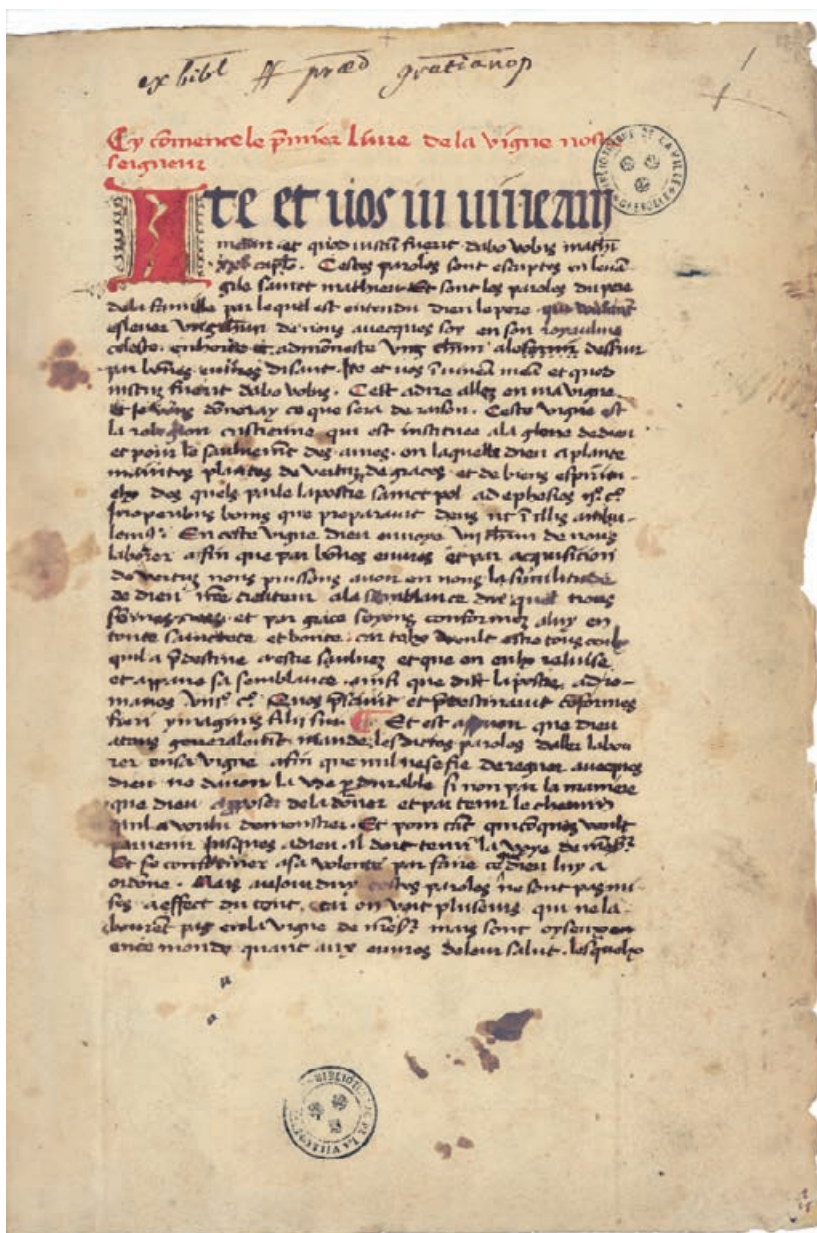 ex bibl ff præd gratianop
Cy cõmence le p̃mier liure de la vigne nostre
seigneur
Ite et uos in uineam
meam et quod iustũ fuerit dabo vobis mathi
xxº capº. Cestes paroles sont escriptes en leuã
gile sainct mathieu et sont les paroles du pere
de la famille par lequel est entendu dieu le pere qui voulent
esleuer vng chũn de nous auecques soy en son royaulme
celeste. enhorte et admoneste vng chũn a le seruir
par bõnes euures disant. Ite et uos ĩ uineã meã et quod
iustũ fuerit dabo vobis. Cest adire allez en ma vigne
et ie vous dõneray ce que sera de raison. Ceste vigne est
la religion cristienne qui est instituee a la gloire de dieu
et pour le sauluemẽt des ames. en laquelle dieu a plante
maintes plantes de vertuz de graces et de biens espiritu-
elx des quelx parle lapostre sainct pol ad ephesios ijº cº
In operibus bonis que preparauit deus ut ĩ illis ambu-
lemꝰ. En ceste vigne dieu enuoye vng chũn de nous
labourer afin que par bõnes euures et par acquisicion
de vertus nous puissons auoir en nous la similitude
de dieu nr̃e createur a la semblance du quel nous
sommes creez et par grace soyons conformez a luy en
toute sainctete et bonte. car telx veult estre tous ceulx
quil a p̃destine a estre sauluez et que en eulx reluise
et appaire sa semblance. ainsi que dist lapostre ad ro-
manos viijº cº Quos p̃sciuit et p̃destinauit cõformes
fieri ymaginis filii sui. Et est assauoir que dieu
a tous generalemẽt mande les dictes paroles daller labou
rer en sa vigne afin que nul ne se fie de regner auecques
dieu ne dauoir la vie p̱durable si non par la maniere
que dieu a pposé de la dõner et par tenir le chemin
quil a voulu demonstrer. Et pour cẽ quicõques veult
paruenir jusques a dieu il doit tenir la voye de
Et se confermer a sa volente par faire ce q̃ dieu luy a
ordõne. Mais auiourduy cestes paroles ne sont pas mi-
ses a effect du tout. car on voit plusieurs qui ne la-
bourẽt pas en la vigne de mais sont oyseux en
en ce monde quant aux euures de leur salut. lesquelx
BIBLIOTHEQUE DE LA VILLE GRENOBLE
BIBLIOTHEQUE DE LA VILLE